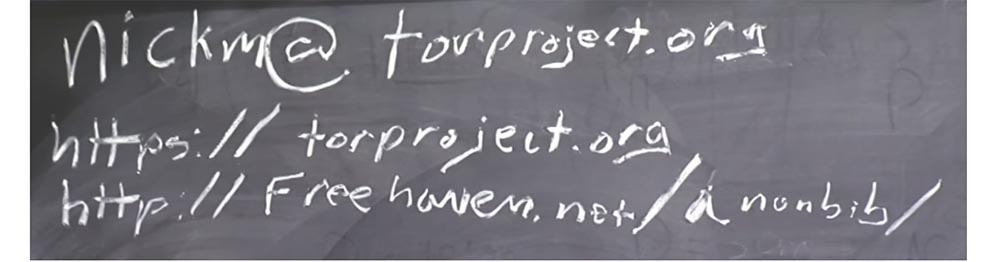 nickm@torproject.org
https://torproject.org
http://freehaven.net/anonbib/